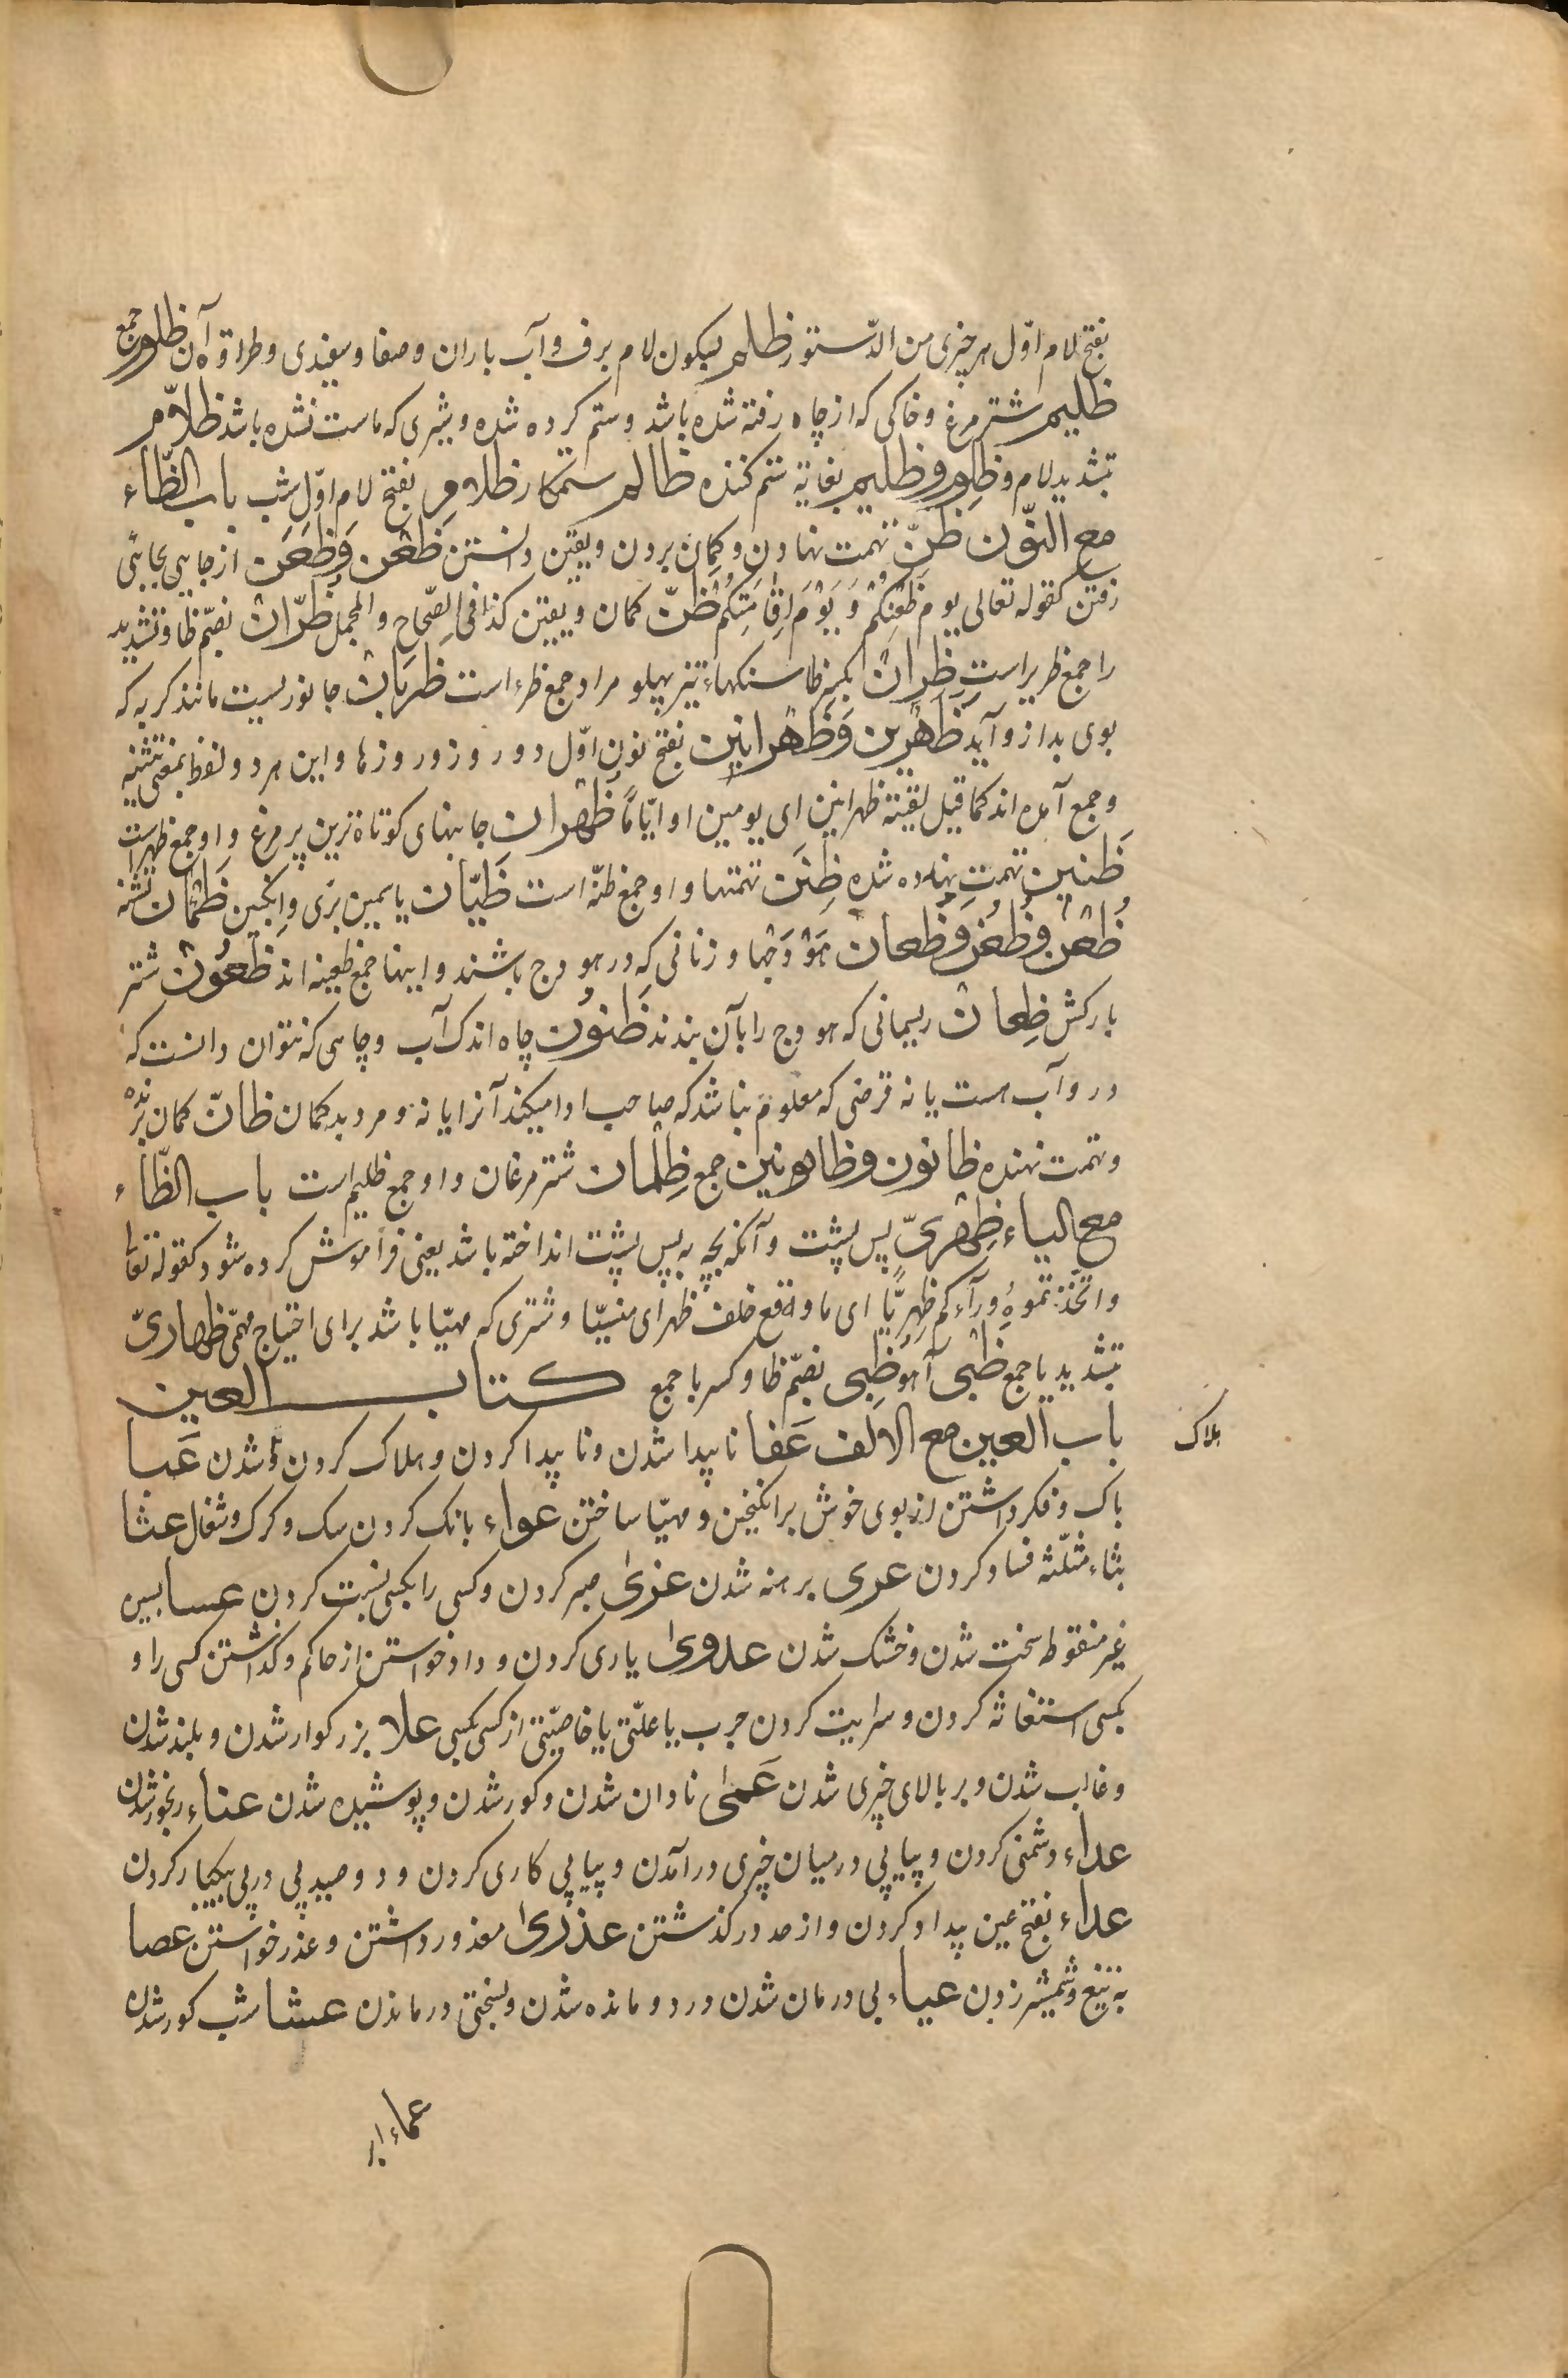 بفتح لام اوّل هر چیزی من الدّستور ظلم بسکون لام برف و آب باران و صفا و سفیدی و طراوة آن ظلوم جمع
ظلیم شترمرغ و خاکی که از چاه رفته شده باشد و ستم کرده شده و شیری که ماست نشده باشد ظلاّم
بتشدید لام و ظلوم و ظلیم بغایة ستم کننده ظالم ستمکار ظلام بفتح لام اوّل شب باب الظّاء
مع النّون ظنّ تهمت نهادن و کمان بردن و یقین دانستن ظَعْن وَظَعَن از جایی بجایی
رفتن کقوله تعالی یوم ظَعْنِکُمْ وَ یَوْمَ اِقَامَتِکُم ظنّ کمان و یقین کذا فی الصّحاح و المجمل ظُرّان بضمّ ظا و تشدید
را جمع ظریر است ظِران بکسر ظا سنکهاء تیز پهلو مراد جمع ظرء است ظَرِبان جانوریست مانند کربه که
بوی بد ازو آید ظَهْرین وَظَهْرانین بفتح نون اوّل دو روز و روزها و این هر دو لفظ بمعنی تثنیه
و جمع آمده اند کما قیل لقیته ظهرانین ای یومین او ایّامًا ظُهْران جانبهای کوتاه ترین پر مرغ و او جمع ظهر است
ظَنین تهمت نهاده شده ظِنَن تهمتها و او جمع ظنّه است ظَیّان یاسمین برّی و انکبین ظَمْآن تشنه
ظُعْن و ظُعُن و ظُعان هَوْدَجها و زنانی که در هودج باشند و اینها جمع ظعینه اند ظَعُون شتر
بارکش ظِعان ریسمانی که هودج را بآن بندند ظَنُون چاه اندک آب و چاهی که نتوان دانست که
درو آب هست یا نه قرضی که معلوم نباشد که صاحب ادا میکند آنرا یا نه و مرد بد کمان ظانّ کمان برنده
و تهمت نهنده ظانون و ظانین جمع ظِلْمان شترمرغان و او جمع ظلیم است باب الظّاء
مع الیاء ظِهْریّ پس پشت و آنکه بچه به پس پشت انداخته باشد یعنی فراموش کرده شود کقوله تعالی
و اتّخذتموهُ ورآءکم ظِهریّا ای ما وقع خلف ظهر ای منسیّا و شتری که مهیّا باشد برای احتیاج مهمّی ظهاریّ
بتشدید یا جمع ظَبْی آهو ظُبِی بضمّ ظا و کسر با جمع کتاب العین
باب العین مع الالف عَفا ناپیدا شدن و ناپیدا کردن و هلاک کردن و شدن عَبا
هلاک
باک و فکر داشتن از بوی خوش برانکیختن و مهیّا ساختن عواء بانک کردن سک و کرک و شغال عثا
بثاء مثلّثه فساد کردن عری برهنه شدن عزیٰ صبر کردن و کسی را بکسی نسبت کردن عسا بسین
غیر منقوط سخت شدن و خشک شدن عدویٰ یاری کردن و داد خواستن از حاکم و گذاشتن کسی را و
بکسی استغاثه کردن و سرایت کردن جرب یا علّتی یا خاصیّتی از کسی بکسی علا بزرکوار شدن و بلند شدن
و غالب شدن و بر بالای چیزی شدن عَمیٰ نادان شدن و کور شدن و پوشیده شدن عناء رنجور شدن
عداء دشمنی کردن و پیاپی در میان چیزی درآمدن و پیاپی کاری کردن و دو صید پی در پی بیکبار کردن
عداء بفتح عین بیداد کردن و از حد درکذشتن عذریٰ معذور داشتن و عذر خواستن عصا
به تیغ و شمشیر زدن عیاء بی درمان شدن درد و مانده شدن و بسختی درماندن عشا شب کور شدن
عماء ابر